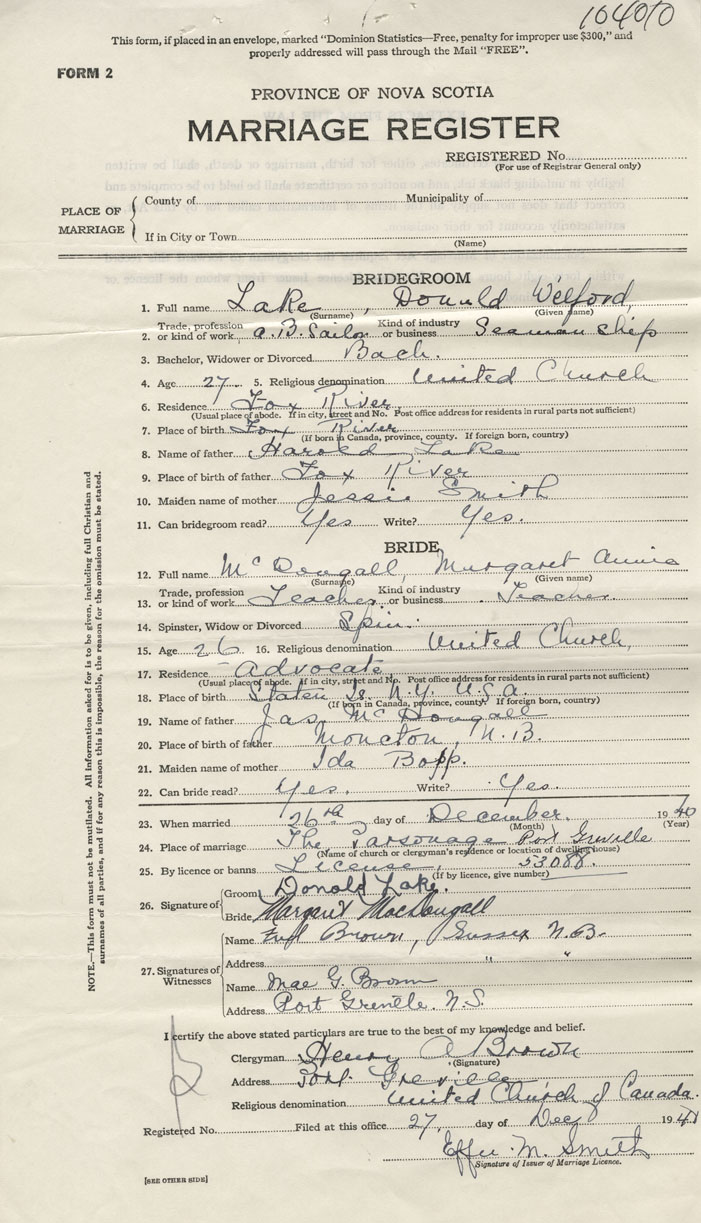 104010
This form, if placed in an envelope, marked "Dominion Statistics—Free, penalty for improper use $300," and
properly addressed will pass through the Mail "FREE".
FORM 2
PROVINCE OF NOVA SCOTIA
MARRIAGE REGISTER
REGISTERED No.
(For use of Registrar General only)
PLACE OF MARRIAGE
County of Municipality of
If in City or Town
(Name)
BRIDEGROOM
1. Full name Lake, Donald Welford,
(Surname) (Given name)
2. Trade, profession or kind of work A.B. Sailor Kind of industry or business Seamanship
3. Bachelor, Widower or Divorced Bach.
4. Age 27 5. Religious denomination United Church
6. Residence Fox River
(Usual place of abode. If in city, street and No. Post office address for residents in rural parts not sufficient)
7. Place of birth Fox River
(If born in Canada, province, county. If foreign born, country)
8. Name of father Harold Lake
9. Place of birth of father Fox River
10. Maiden name of mother Jessie Smith
11. Can bridegroom read? Yes Write? Yes.
BRIDE
12. Full name McDougall, Margaret Annie
(Surname) (Given name)
13. Trade, profession or kind of work Teacher Kind of industry or business Teacher
14. Spinster, Widow or Divorced Spin.
15. Age 26 16. Religious denomination United Church,
17. Residence Advocate
(Usual place of abode. If in city, street and No. Post office address for residents in rural parts not sufficient)
18. Place of birth Staten Is. N.Y. U.S.A.
(If born in Canada, province, county. If foreign born, country)
19. Name of father Jas. McDougall
20. Place of birth of father Moncton, N.B.
21. Maiden name of mother Ida Bopp.
22. Can bride read? Yes. Write? Yes.
23. When married 26th day of December. 1940
(Month) (Year)
24. Place of marriage The Parsonage Port Greville
(Name of church or clergyman's residence or location of dwelling house)
25. By licence or banns License 53088.
(If by licence, give number)
26. Signature of
Groom Donald Lake.
Bride Margaret MacDougall
27. Signatures of Witnesses
Name Brown, Sussex N.B.
Address " "
Name Mae G. Brown
Address Port Greville. N.S.
I certify the above stated particulars are true to the best of my knowledge and belief.
Clergyman Henry A Brown
(Signature)
Address Port Greville
Religious denomination United Church of Canada.
Registered No. Filed at this office 27, day of Dec 19
Effie M. Smith
Signature of Issuer of Marriage Licence.
[SEE OTHER SIDE]
NOTE.—This form must not be mutilated. All information asked for is to be given, including full Christian and
surnames of all parties, and if for any reason this is impossible, the reason for the omission must be stated.